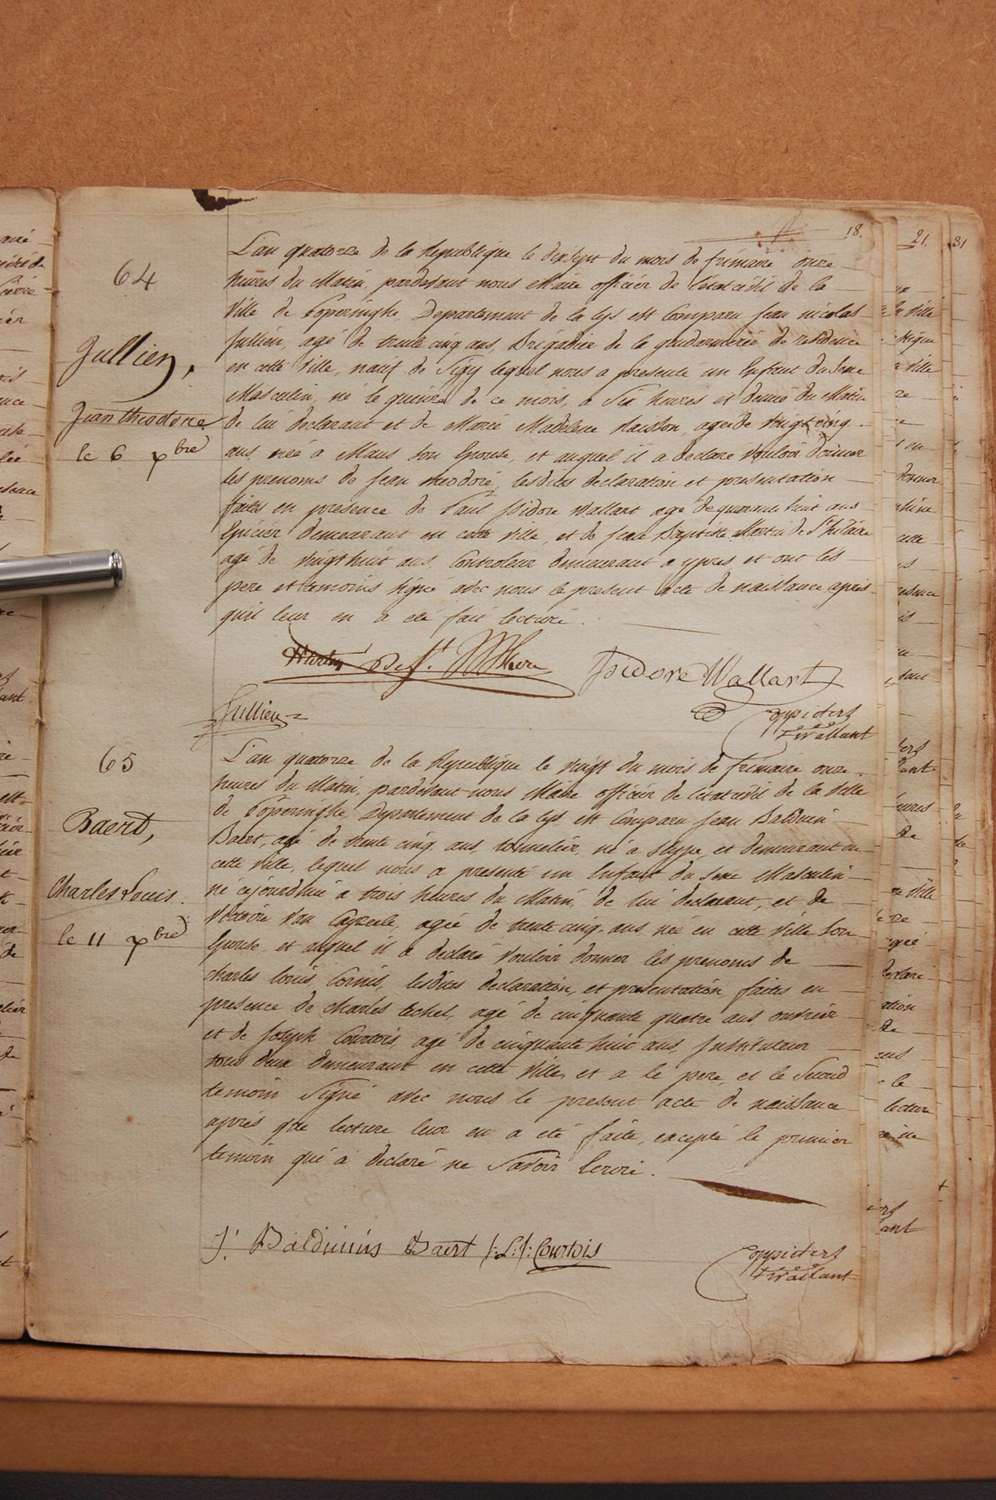 18.
64
Jullien,
Jean theodore
le 6 xbre
L'an quatorze de la Republique le dixsept du mois de frimaire onze
heures du Matin, pardevant nous Maire officier de l'etat civil de la
Ville de Poperinghe, Departement de la Lys est Comparu Jean nicolas
Jullien, agé de trente cinq ans, Brigadier de la gendarmerie de residence
en cette Ville, natif de Sigy lequel nous a presenté un Enfant du Sexe
Masculin, né le quinze de ce mois, a Six heures et demie du Matin
de lui declarant et de Marie Madeleine agée de vingt cinq
ans née à Mans Son Epouse, et auquel il a declaré vouloir donner
les prenoms de Jean theodore, lesdites declaration et presentation
faites en presence de Paul Isidore Wallart agé de quarante huit ans
Epicier demeurant en cette ville, et de Jean Baptiste Martin de St hilaire
agé de vingt huit ans, Controleur demeurant a ypres, et ont les
pere et temoins signé avec nous le present acte de naissance après
qu'il leur en a été fait lecture.
Martin De St. hilaire Isidore Wallart
Jullien
65
Baert,
Charles Louis.
le 11 xbre
L'an quatorze de la Republique le vingt du mois de frimaire onze
heures du Matin, pardevant nous Maire officier de l'etat civil de la Ville
de Poperinghe, Departement de la Lys est Comparu Jean Balduin
Baert, agé de trente cinq ans tonnelier, né a Slype, et demeurant en
cette Ville, lequel nous a presenté un Enfant du Sexe Masculin
né cejourdhui a trois heures du Matin, de lui declarant, et de
Victoire Van Cayzeele, agée de trente cinq ans née en cette Ville Son
Epouse et auquel il a declaré vouloir donner les prenoms de
charles louis Cornis, lesdites declaration, et presentation faites en
presence de charles agé de cinquante quatre ans ouvrier
et de Joseph Courtois agé de cinquante huit ans, Instituteur
tous deux demeurant en cette Ville, et a le pere, et le Second
temoin Signé avec nous le present acte de naissance
après que lecture leur en a été faite, excepté le premier
temoin qui a declaré ne Savoir Ecrire.
J: Balduinus Baert J:L:J: Courtois